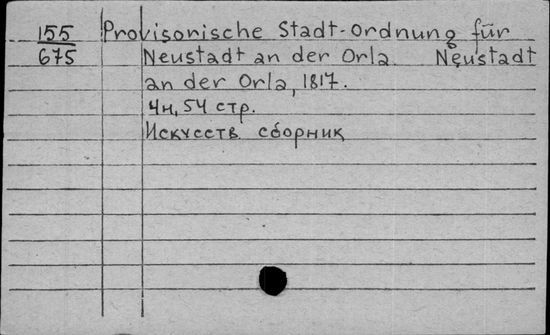 155 Provisorische Stadt-Ordnung für
675 Neustadt an der Orla. Neustadt
an der Orla, 1817.
4н, 54 стр.
Искусств. сборник